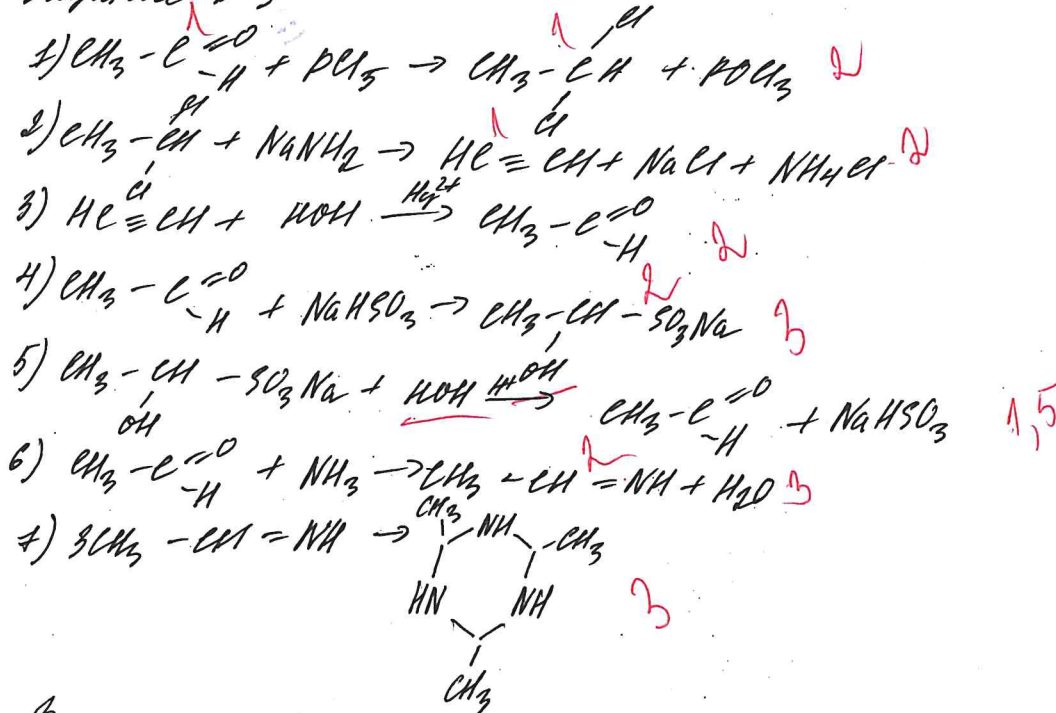 1
1) CH₃-C=O-H + PCl₅ → CH₃-CH(Cl)(Cl) + POCl₃ 2
1
2) CH₃-CH(Cl)(Cl) + NaNH₂ → HC≡CH + NaCl + NH₄Cl 2
1
3) HC≡CH + HOH Hg²⁺→ CH₃-C=O-H 2
4) CH₃-C=O-H + NaHSO₃ → CH₃-CH(OH)-SO₃Na 3
2
5) CH₃-CH(OH)-SO₃Na + HOH H⁺→ CH₃-C=O-H + NaHSO₃ 1,5
6) CH₃-C=O-H + NH₃ → CH₃-CH=NH + H₂O 3
2
7) 3CH₃-CH=NH →
CH₃ NH -CH₃
HN NH 3
CH₃